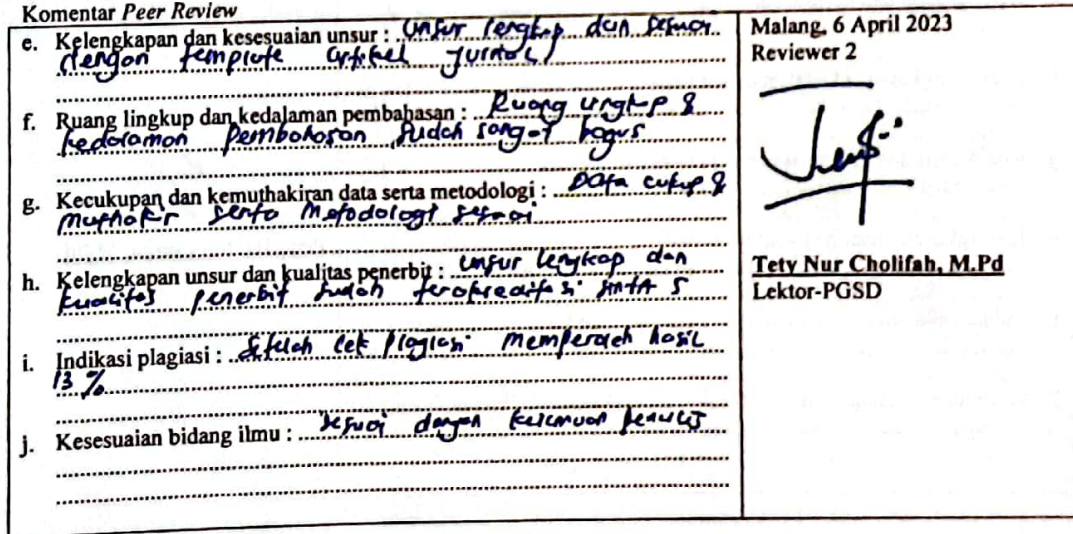 Komentar Peer Review
e. Kelengkapan dan kesesuaian unsur : Unsur lengkap dan sesuai
dengan template artikel jurnal
f. Ruang lingkup dan kedalaman pembahasan : Ruang lingkup &
kedalaman pembahasan sudah sangat bagus
g. Kecukupan dan kemuthakiran data serta metodologi : Data cukup &
muthakir serta metodologi sesuai
h. Kelengkapan unsur dan kualitas penerbit : unsur lengkap dan
kualitas penerbit sudah terakreditasi sinta 5
i. Indikasi plagiasi : Setelah cek plagiasi memperoleh hasil
13 %
j. Kesesuaian bidang ilmu : sesuai dengan keilmuan penulis
Malang, 6 April 2023
Reviewer 2
Tety Nur Cholifah, M.Pd
Lektor-PGSD